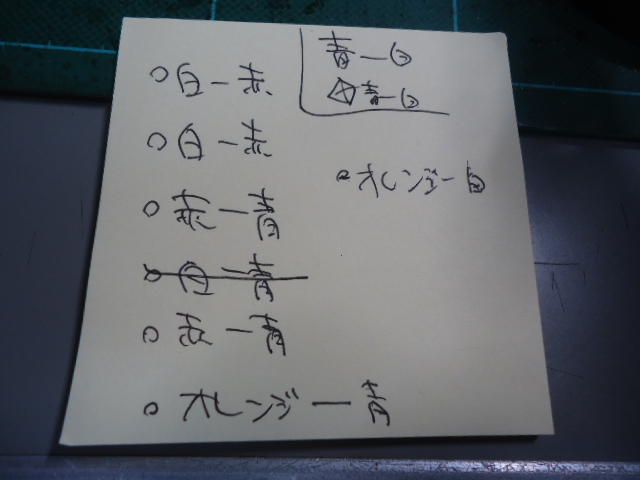 ○白ー赤
○白ー赤
○赤ー青
○白ー青
○赤ー青
○オレンジー青
青ー白
青ー白
○オレンジー白